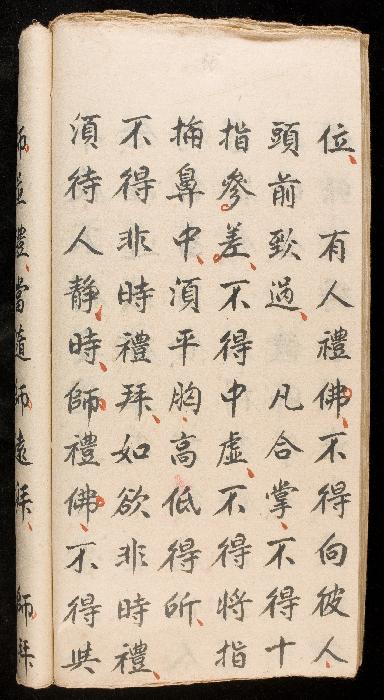 位、有人禮佛、不得向彼人、
頭前致過、凡合掌、不得十
指參差、不得中虛、不得將指
揷鼻中、湏平胸、高低得所、
不得非時禮拜、如欲非時禮、
湏待人靜時、師禮佛、不得與
師並禮、當道師遠拜、師拜